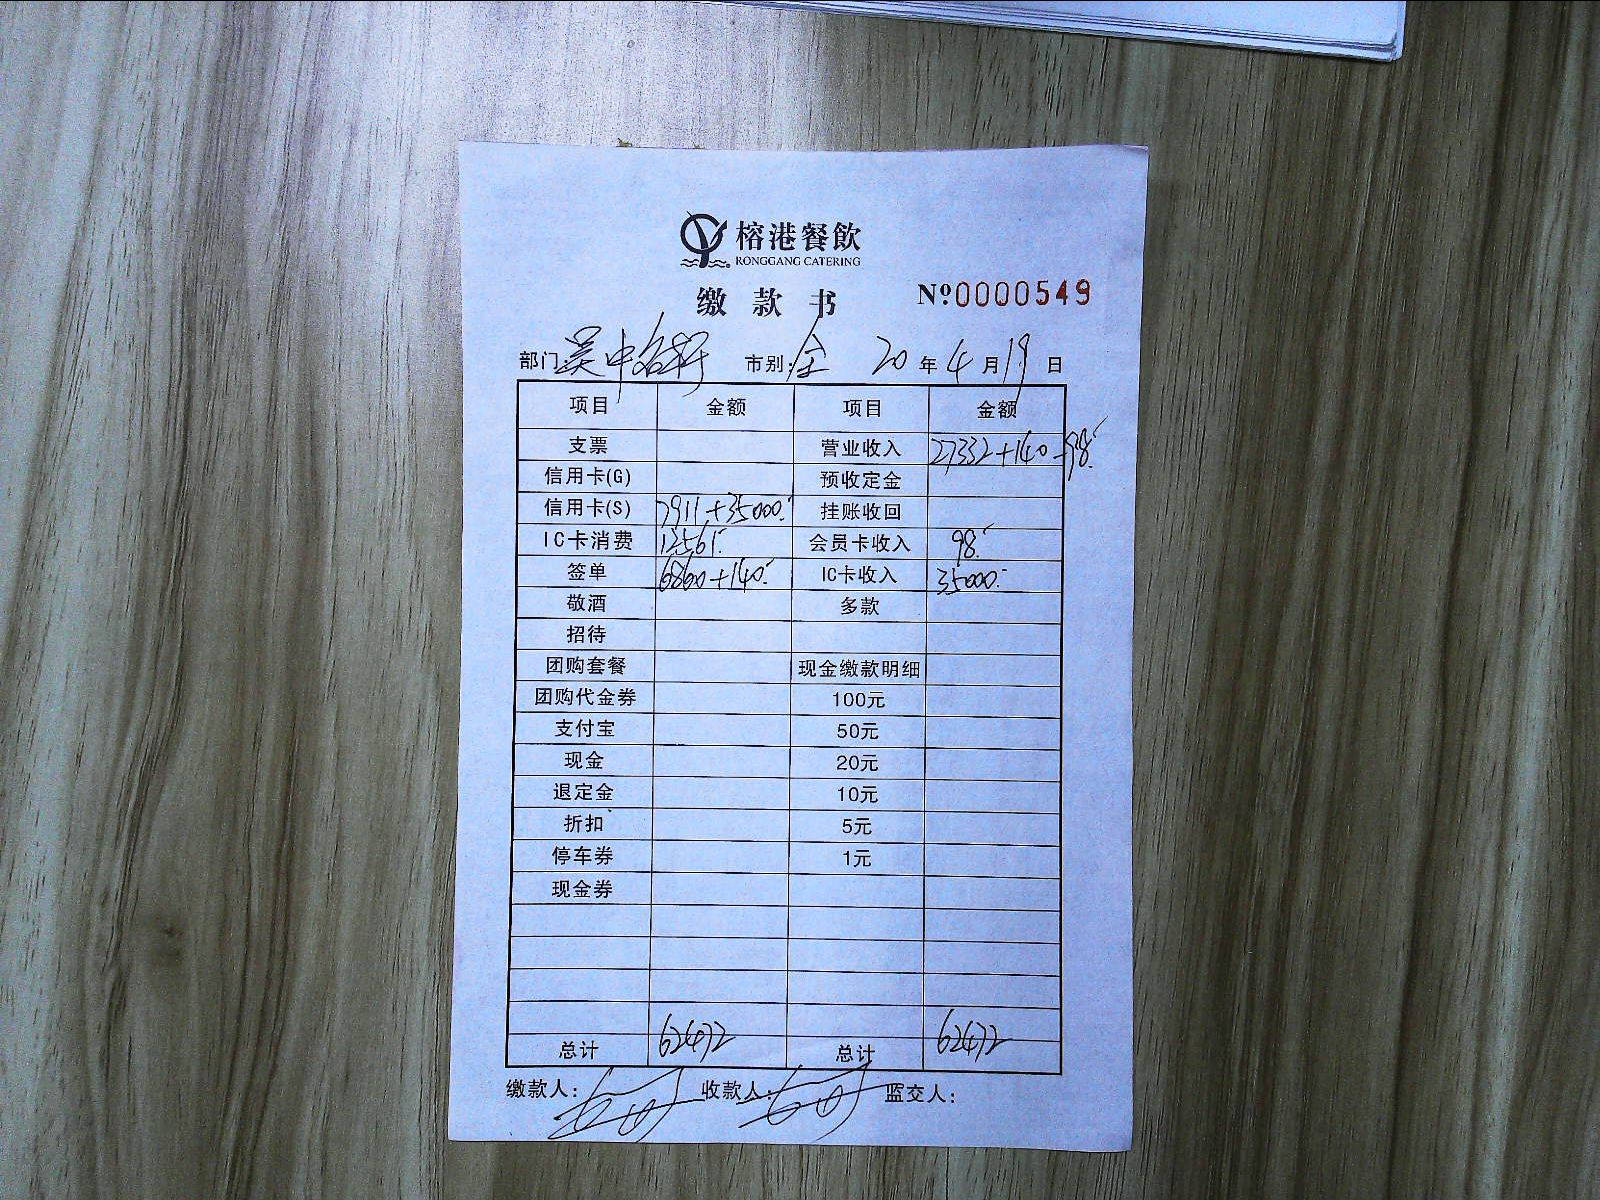 榕港餐飲
RONGGANG CATERING
缴款书
Nº0000549
部门:吴中 市别:全 20年4月19日
项目 金额 项目 金额
支票 营业收入 27332+140-98.
信用卡(G) 预收定金
信用卡(S) 7911+35000. 挂账收回
IC卡消费 12561. 会员卡收入 98.
签单 6860+140. IC卡收入 35000.
敬酒 多款
招待
团购套餐 现金缴款明细
团购代金券 100元
支付宝 50元
现金 20元
退定金 10元
折扣 5元
停车券 1元
现金券
总计 62472 总计 62472
缴款人: 收款人: 监交人: